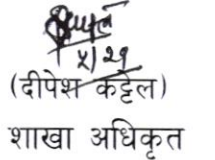 ५/२९
(दीपेश कट्टेल)
शाखा अधिकृत